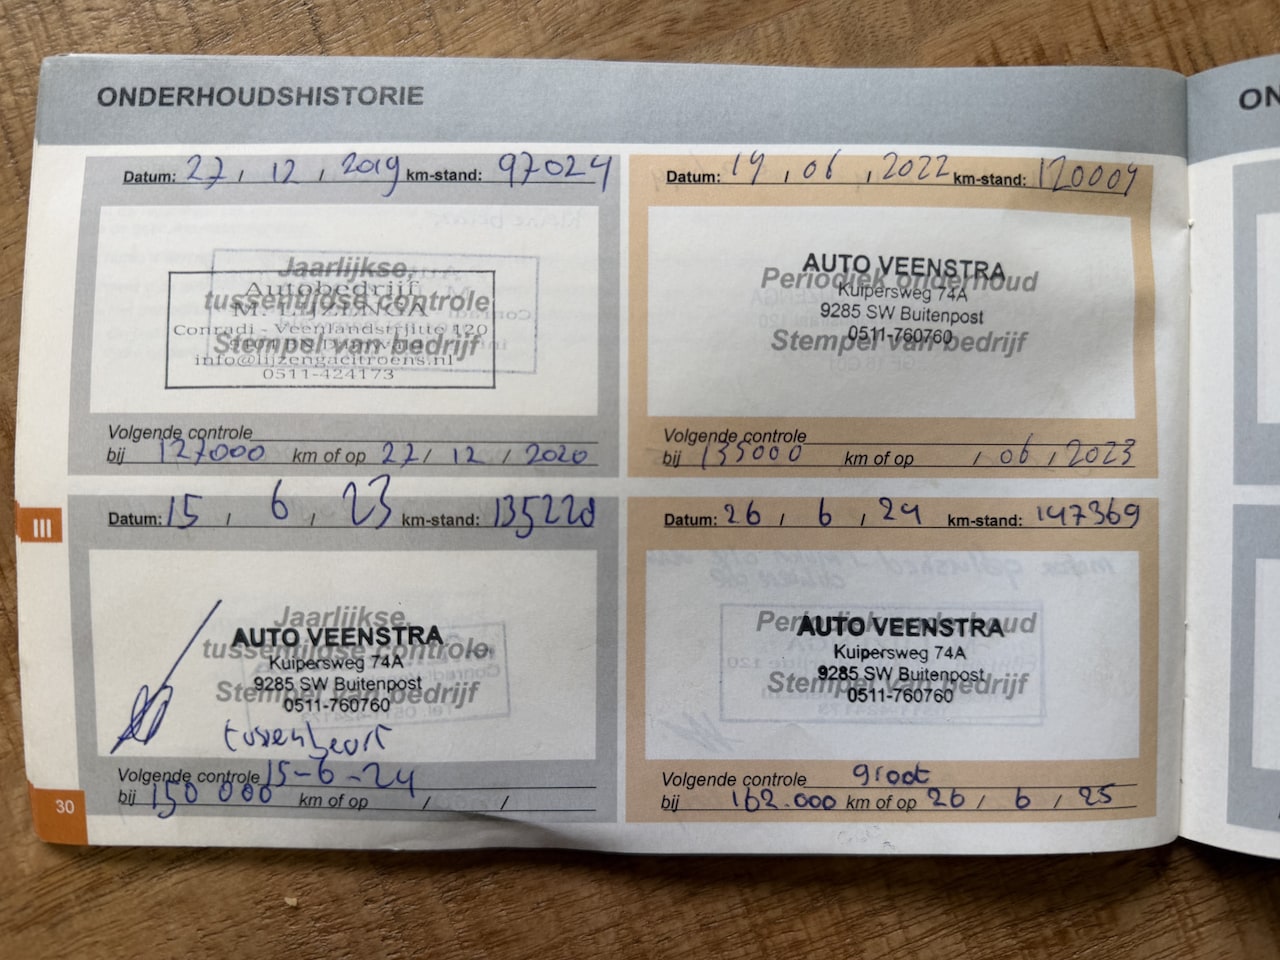 ONDERHOUDSHISTORIE
ON
Datum: 27 / 12 / 2019 km-stand: 97024
Jaarlijkse,
tussentijdse controle
Autobedrijf
M. LIJZENGA
Conradi - Veenlandstrjitte 120
Stempel van bedrijf
info@lijzengacitroens.nl
0511-424173
Volgende controle
bij 127000 km of op 27 / 12 / 2020
Datum: 14 / 06 / 2022 km-stand: 120004
AUTO VEENSTRA
Periodiek onderhoud
Kuipersweg 74A
9285 SW Buitenpost
0511-760760
Stempel van bedrijf
Volgende controle
bij 135000 km of op / 06 / 2023
III
Datum: 15 / 6 / 23 km-stand: 135220
Jaarlijkse,
AUTO VEENSTRA
tussentijdse controle,
Kuipersweg 74A
9285 SW Buitenpost
Stempel van bedrijf
0511-760760
tussenbeurt
Volgende controle 15-6-24
bij 150000 km of op / /
Datum: 26 / 6 / 24 km-stand: 147369
Periodiek onderhoud
AUTO VEENSTRA
Kuipersweg 74A
9285 SW Buitenpost
Stempel van bedrijf
0511-760760
Volgende controle groot
bij 162.000 km of op 26 / 6 / 25
30